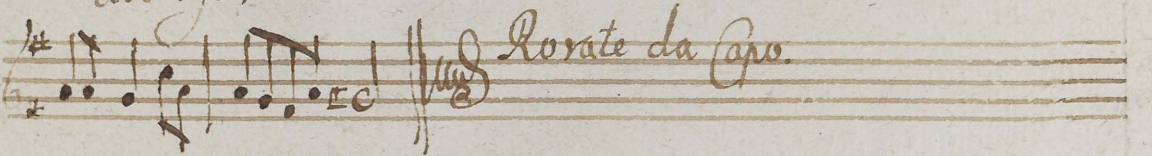 Rorate da Capo.